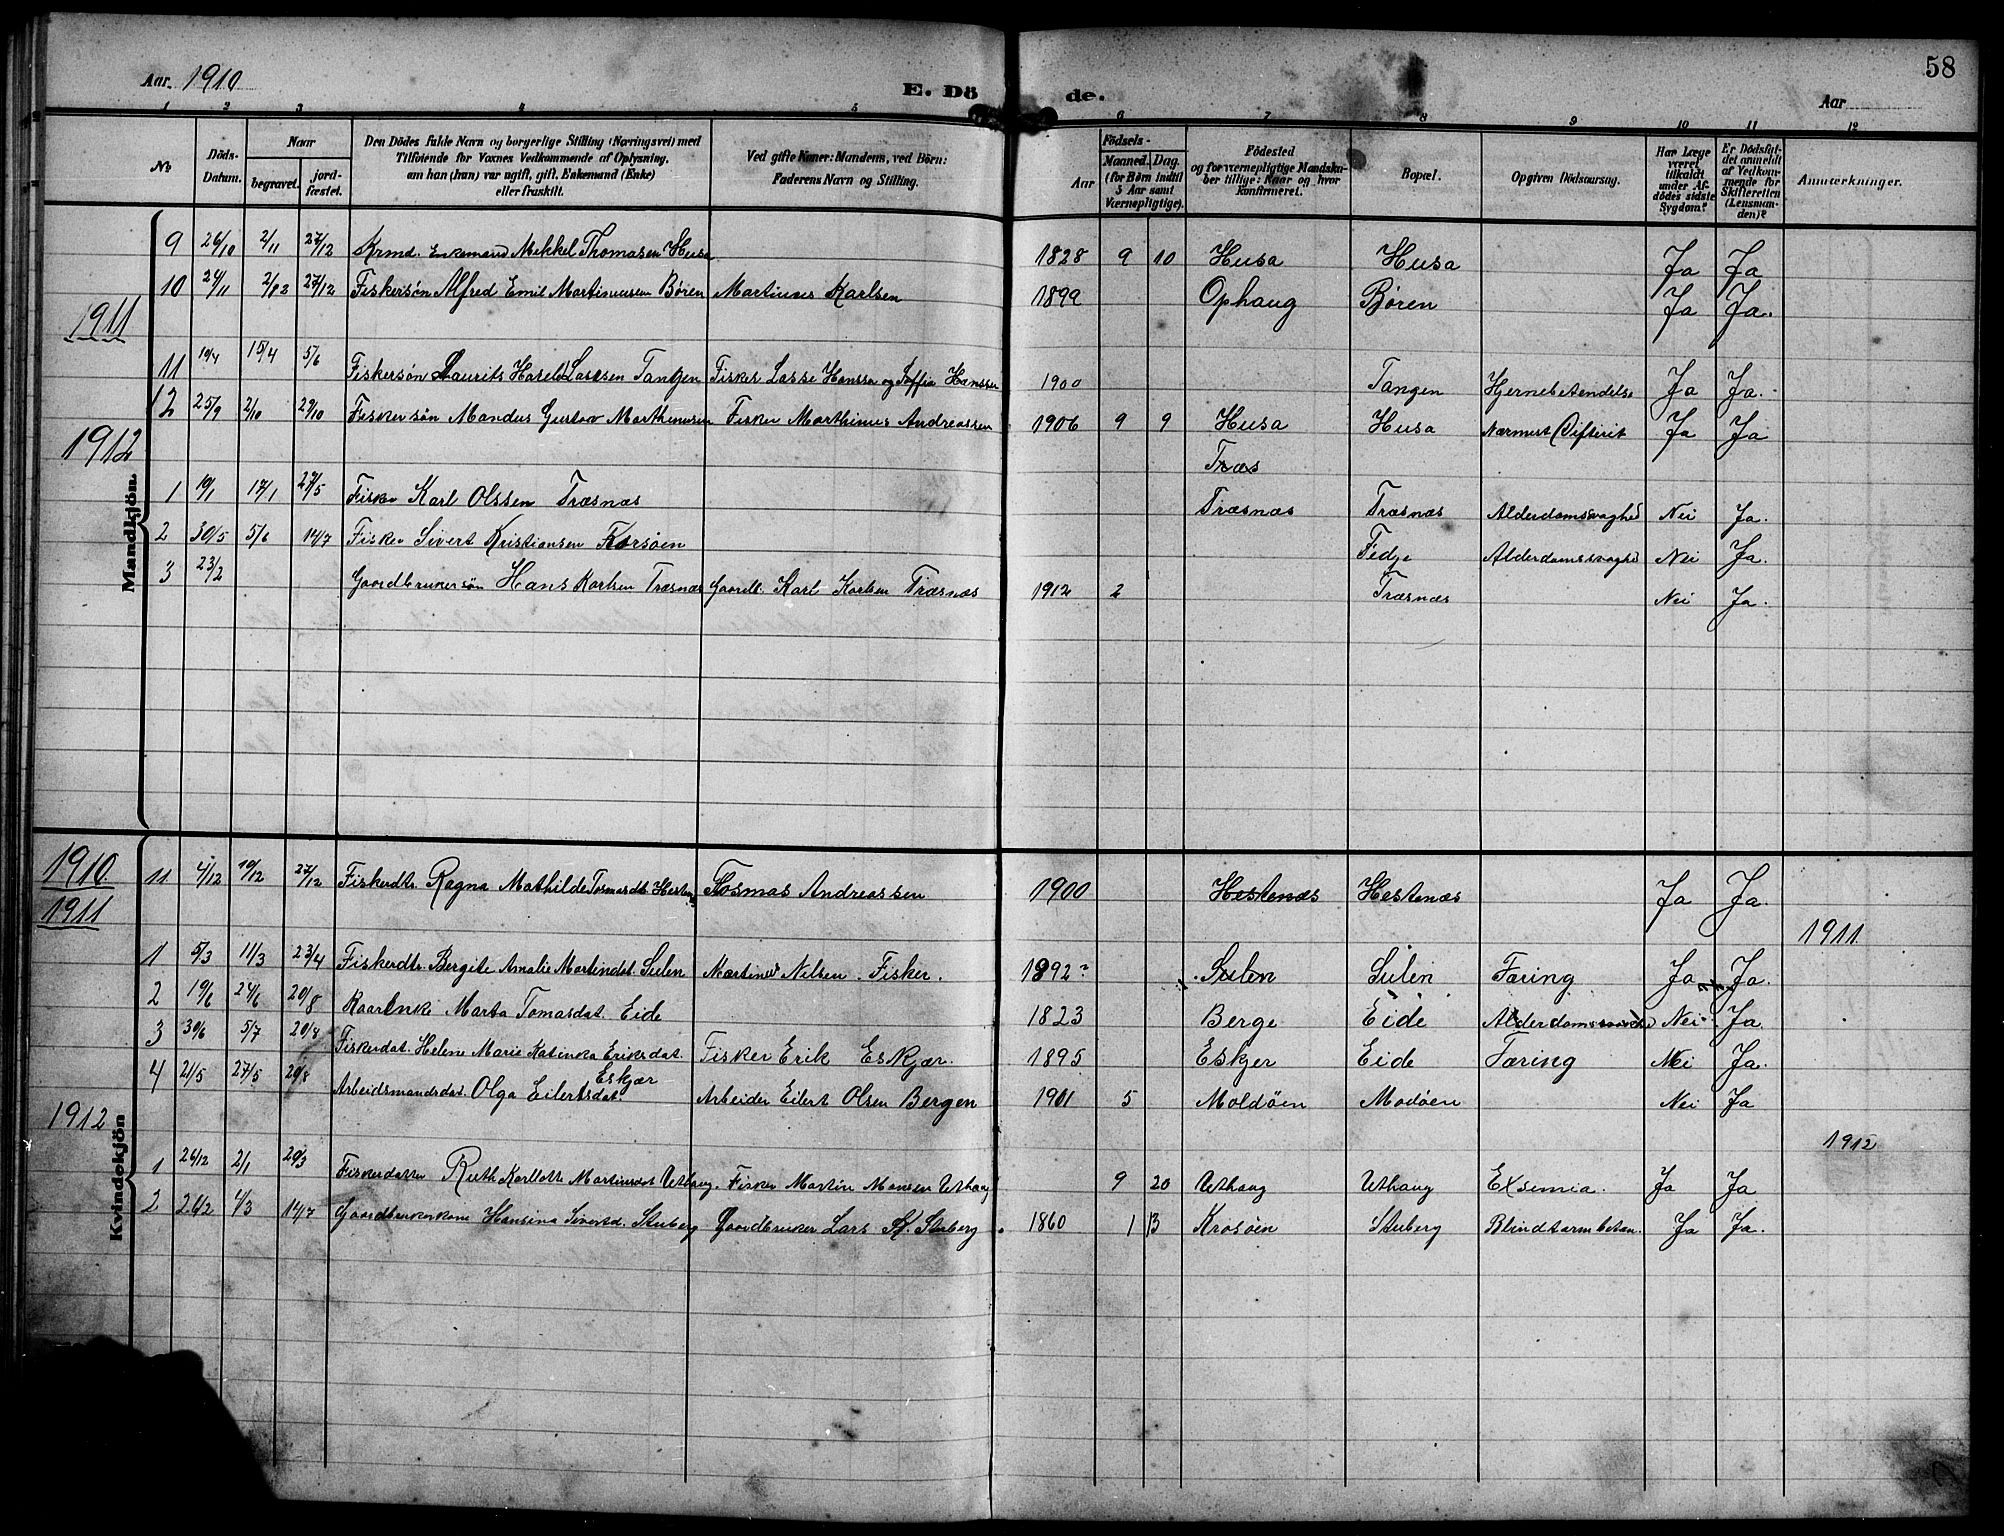 58
Aar. 1910 E. Dö de. Aar
1 2 3 4 5 6 7 8 9 10 11 12
No
Döds-Datum.
Naar
begravet.
jord-fæstet.
Den Dödes fulde Navn og borgerlige Stilling (Næringsvei) med
Tilföiende for Voxnes Vedkommende af Oplysning,
om han (hun) var ugift, gift, Enkemand (Enke)
eller fraskilt.
Ved gifte Koner: Mandens, ved Börn:
Faderens Navn og Stilling.
Födsels-
Aar
Maaned. Dag.
(for Børn indtil
5 Aar samt
Værnepligtige).
Födested
og for værnepligtige Mandska-
ber tillige: Naar og hvor
konfirmeret.
Bopæl.
Opgiven Dödsaarsag.
Har Læge
været
tilkaldt
under Af-
dødes sidste
Sygdom?
Er Dödsfal-
det anmeldt
af Vedkom-
mende for
Skifteretten
(Lensman-
den)?
Anmærkninger.
Mandkjön.
9 26/10 2/11 27/12 Krmd. Enkemand Mikkel Thomasen Husa 1828 9 10 Husa Husa Ja Ja
10 24/11 2/12 27/12 Fiskersøn Alfred Emil Martinusen Børen Martinus Karlsen 1899 Ophaug Børen Ja Ja.
1911
11 19/4 15/4 5/6 Fiskersøn Laurits Harald Lassen Tangen Fisker Lasse Hanssen og Soffia Hanssen 1900 Tangen Hjernebetændelse Ja Ja.
12 25/9 2/10 29/10 Fiskersøn Mandus Gustav Marthinusen Fisker Marthinus Andreassen 1906 9 9 Husa Husa Nærmest Difterit Ja Ja
1912
Træs
1 10/1 17/1 27/5 Fisker Karl Olssen Træsnæs Træsnæs Træsnæs Alderdomsvaghed Nei Ja.
2 30/5 5/6 14/7 Fisker Sivert Kristiansen Korsøen Fedje Alderdomssvaghed Nei Ja.
3 23/2 Gaardbrukersøn Hans Karlsen Træsnæs Gaardb. Karl Karlsen Træsnæs 1912 2 Træsnæs Nei Ja.
Kvindekjön
1910
11 4/12 10/12 27/12 Fiskerdtr Ragna Mathilde Tosmasdt. Hestnæs Tosmas Andreassen 1900 Hestenæs Hestenæs Ja Ja.
1911
1911.
1 5/3 11/3 23/4 Fiskerdtr. Bergite Amalie Martindat. Sulen Martinus Nilsen. Fisker. 1892? Sulen Sulen Tæring Ja Ja.
2 19/6 24/6 20/8 Kaarenke Marta Tomasdat. Eide 1823 Berge Eide Alderdomssvaghed Nei Ja.
3 30/6 5/7 20/8 Fiskerdat. Helene Marie Katinka Eriksdat. Eskjær Fisker Erik Eskjær. 1895 Eskjer Eide Tæring Nei Ja.
4 21/5 27/5 20/8 Arbeidsmandsdat. Olga Eilertsdat. Arbeider Eilert Olsen Bergen 1901 5 Moldøen Modøen Nei Ja
1912
1912
1 26/12 2/1 20/3 Fiskerdatter Ruth Karlotte Martinsdat Uthaug. Fisker Martin Monsen Uthaug 9 20 Uthaug Uthaug Exsemia. Ja Ja
2 26/2 4/3 14/7 Gaardbrukerkone Hansina Sivertsd. Stuberg Gaardbruker Lars K. Stuberg. 1860 1 13 Krosøen Stuberg Blindtarmbetæn. Ja Ja.